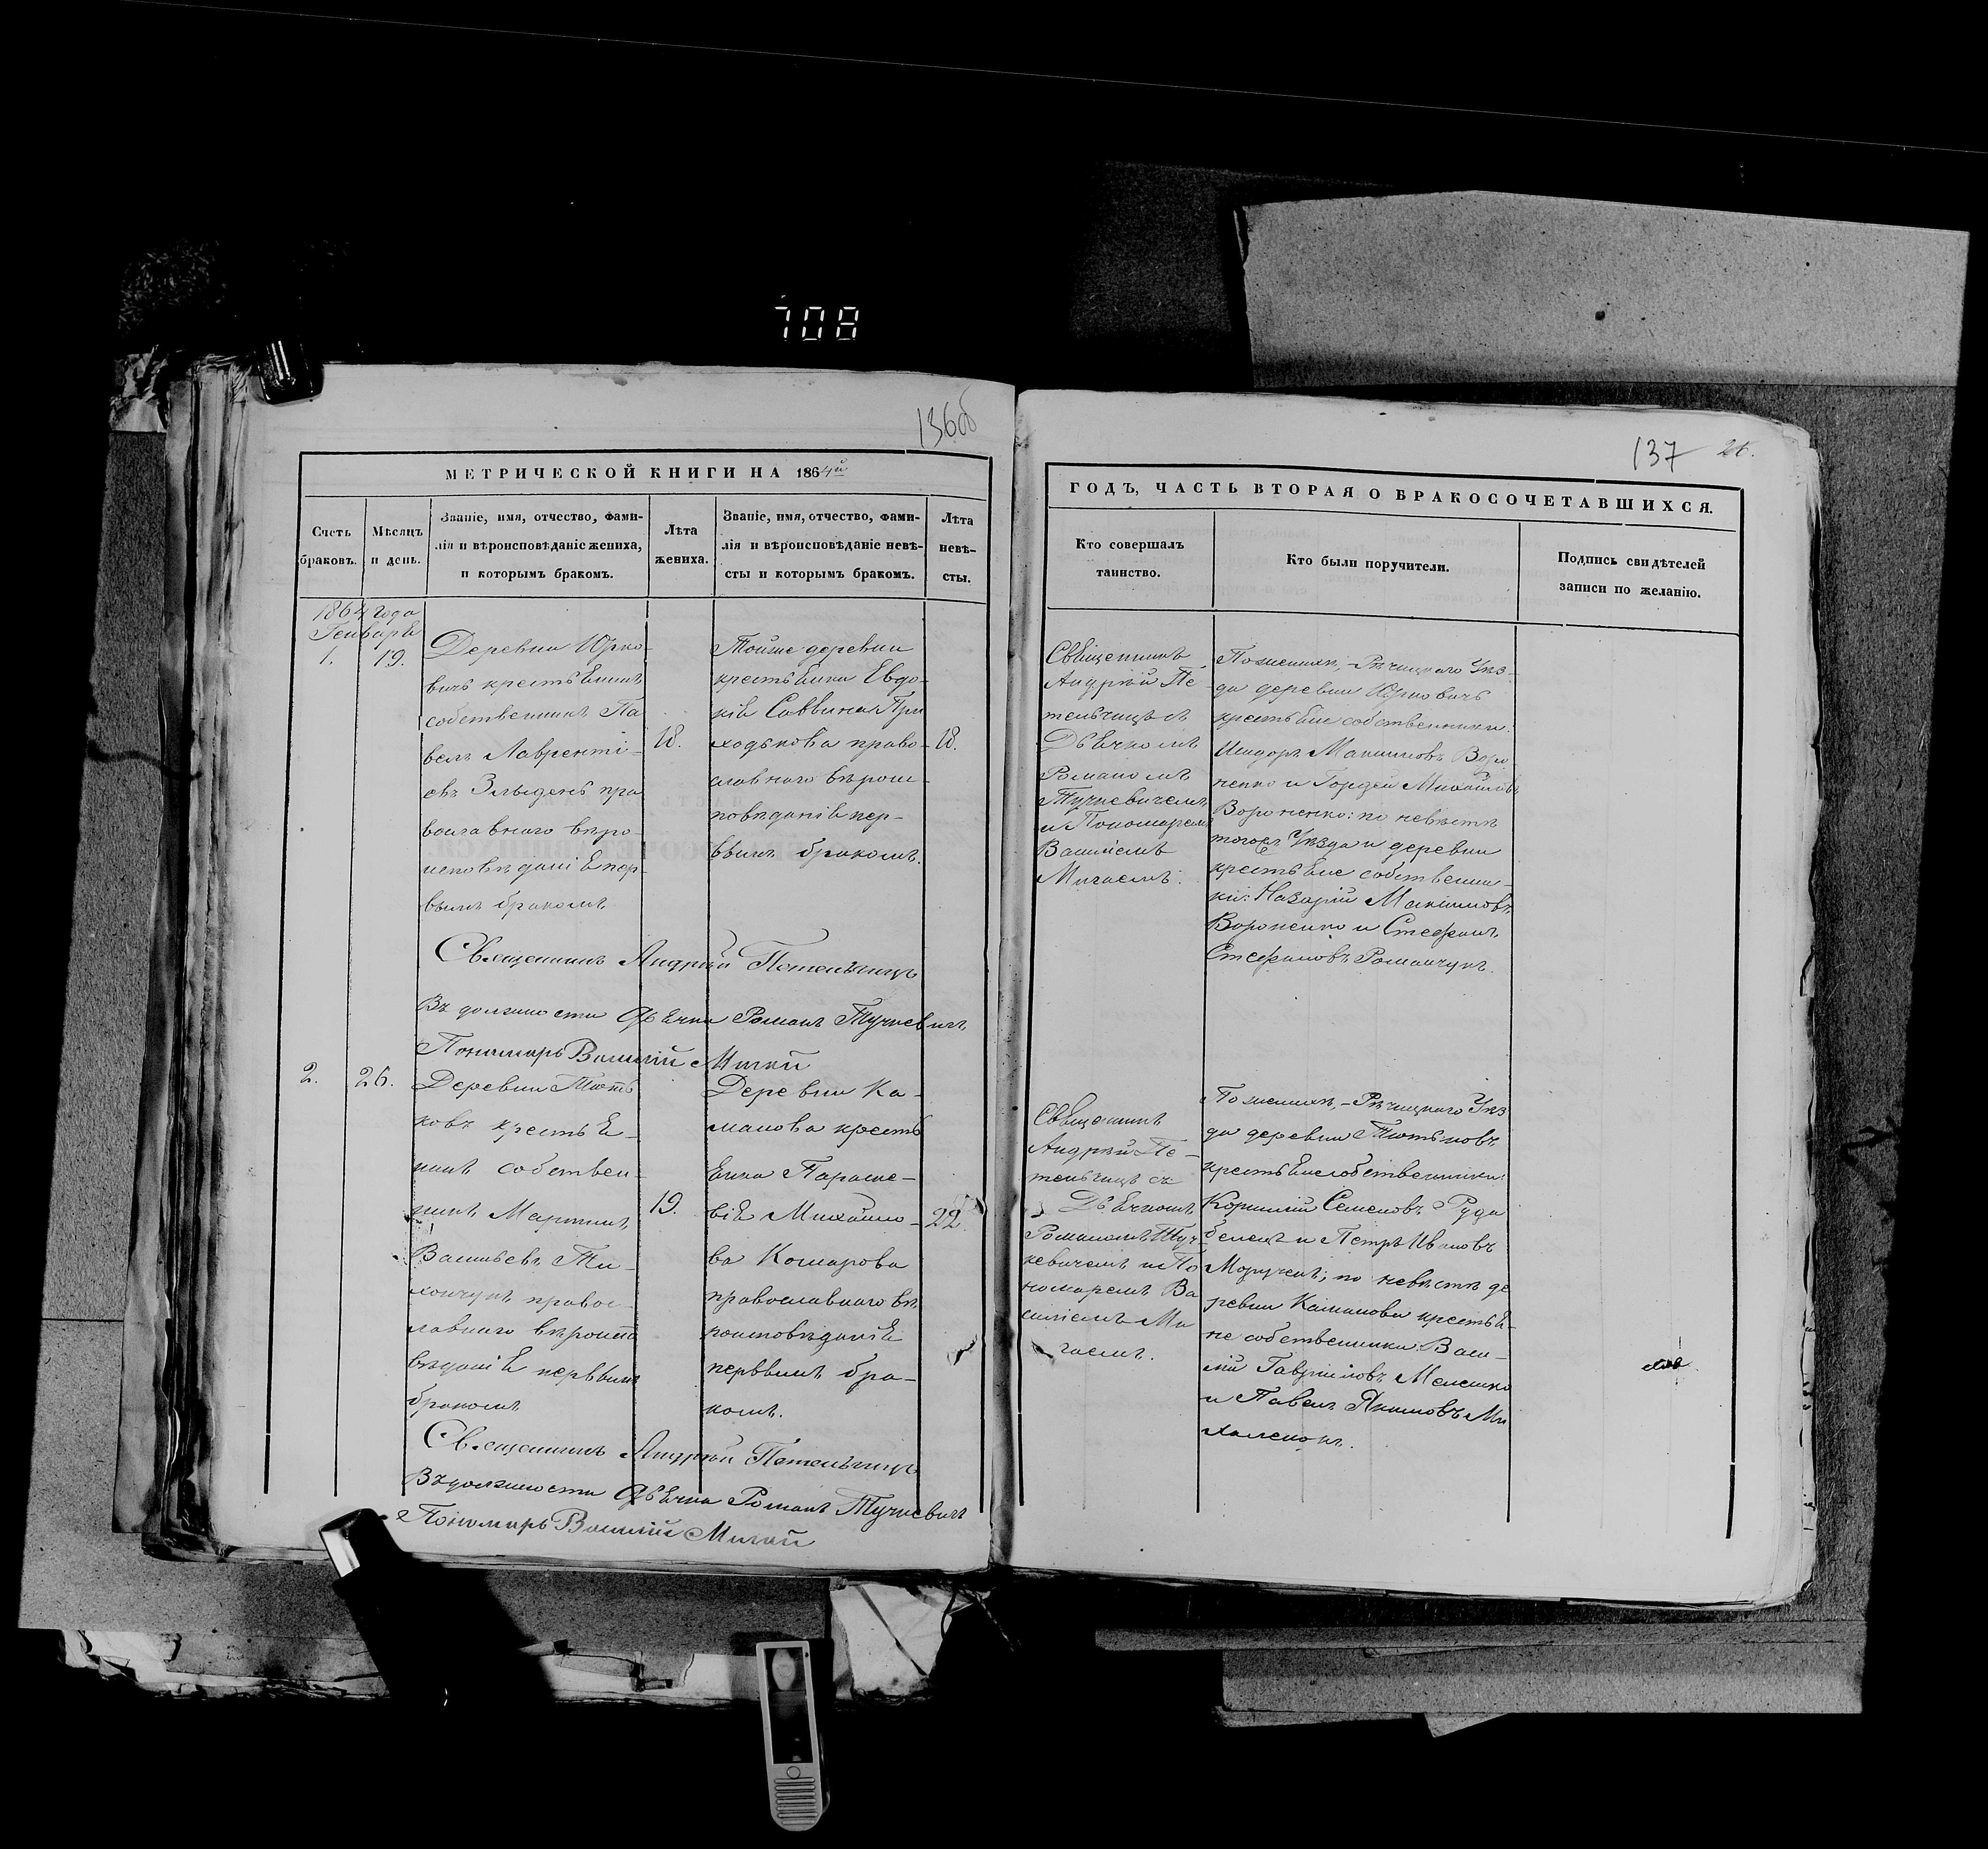 708
136об
МЕТРИЧЕСКОЙ КНИГИ НА 1864й
Счетъ браковъ.
Мѣсяцъ и день.
Званіе, имя, отчество, фами-
лія и вѣроисповѣданіе жениха,
и которымъ бракомъ.
Лѣта
жениха.
Званіе, имя, отчество, фами-
лія и вѣроисповѣданіе невѣ-
сты и которымъ бракомъ.
Лѣта
невѣ-
сты.
1864 года
Генваря
1. 19.
Деревни Юрко-
вичъ крестьянинъ
собственникъ Па
велъ Лаврентi-
евъ
пра
вославнаго вѣро-
исповѣданiя пер-
вымъ бракомъ.
18.
Тойже деревни
крестьянка Евдо-
кiя Саввина При
ходькова право-
славнаго вѣроис-
повѣданiя пер-
вымъ бракомъ.
18.
Священникъ Андрей Петельчицъ
Въ должности Дьячка Романъ Тучкевичъ
Пономарь Василiй Мигай
2. 26.
Деревни Тють
ковъ крестья-
нинъ собствен-
никъ Мартинъ
Васильевъ Ти-
хончукъ правос-
лавнаго вѣроиспо
вѣданiя первымъ
бракомъ
19.
Деревни Ка-
манова кресть
янка Параске-
вiя Михайло-
ва Комарова
православнаго вѣ
роисповѣданiя
первымъ бра-
комъ.
22
Священникъ Андрей Петельчицъ
Въ должности Дьячка Романъ Тучкевичъ
Пономарь Василiй Мигай
137 26.
ГОДЪ, ЧАСТЬ ВТОРАЯ О БРАКОСОЧЕТАВШИХСЯ.
Кто совершалъ
таинство.
Кто были поручители.
Подпись свидѣтелей
записи по желанію.
Священникъ
Андрей Пе-
тельчицъ съ
Дьячкомъ
Романомъ
Тучкевичемъ
и Пономаремъ
Василiемъ
Мигаемъ.
По женихѣ,- Рѣчицкаго Уѣз-
да деревни Юрковичъ
крестьяне собственники:
Исидоръ Максимовъ Воро
ненко и Гордей Михайловъ
Вороненко: по невѣстѣ
тогожъ Уѣзда и деревни
крестьяне собственни-
ки: Назарiй Максимовъ
Вороненко и Стефанъ
Стефановъ Романчукъ.
Священникъ
Андрей Пе-
тельчицъ съ
Дьячкомъ
Романомъ Туч-
кевичемъ и По
номаремъ Ва
силiемъ Ми
гаемъ.
По женихѣ,- Рѣчицкаго Уѣз
да деревни Тютьковъ
крестьяне собственники:
Корнилiй Семеновъ Руда
белецъ и Петръ Ивановъ
по невѣстѣ де
ревни Каманова крестья-
не собственники: Васи-
лiй Гавриловъ Мелешко
и Павелъ Якимовъ Ми
халенокъ.